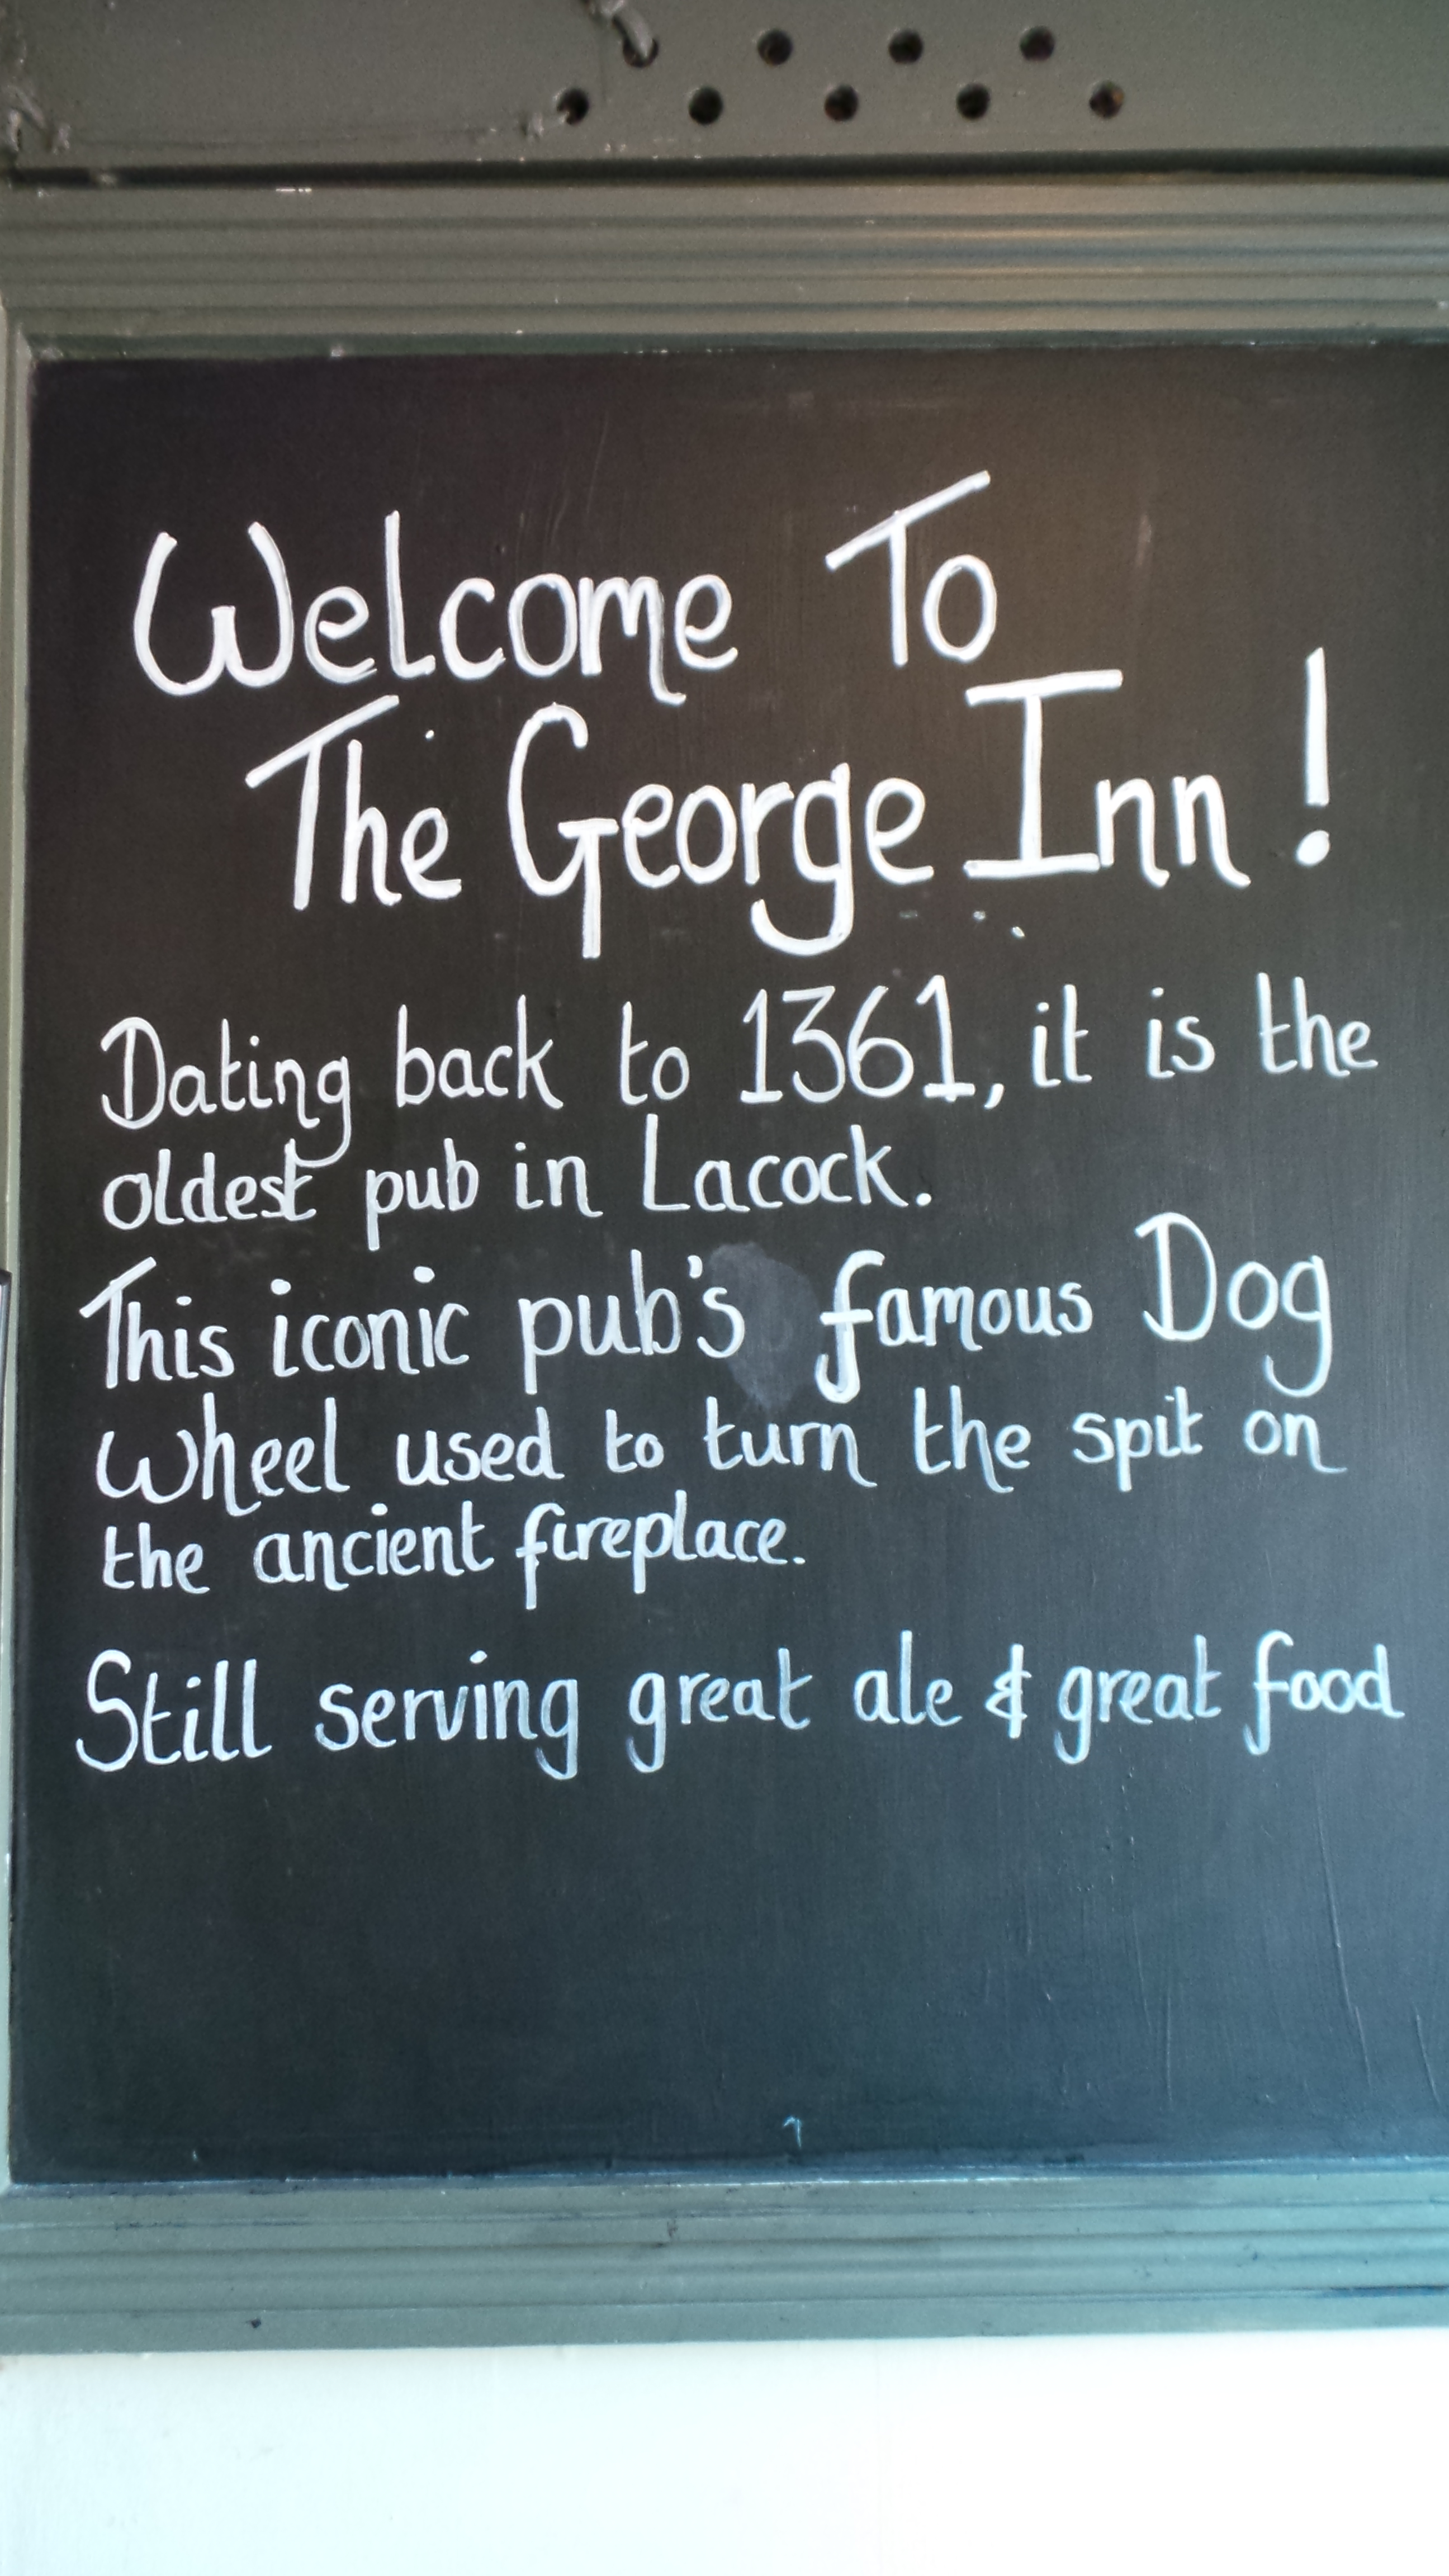 Welcome To
The George Inn!
Dating back to 1361, it is the
oldest pub in Lacock.
This iconic pub's famous Dog
wheel used to turn the spit on
the ancient fireplace.
Still serving great ale & great food